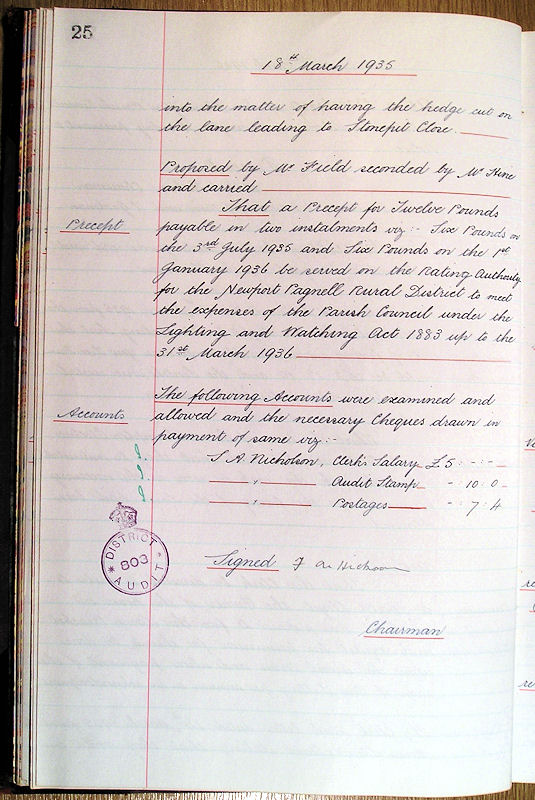 25
18th March 1935
into the matter of having the hedge cut on
the lane leading to Stonepit Close.
Proposed by Mr Field seconded by Mr Hine
and carried
That a Precept for Twelve Pounds
Precept
payable in two instalments viz:- Six Pounds on
the 3rd July 1935 and Six Pounds on the 1st
January 1936 be served on the Rating Authority
for the Newport Pagnell Rural District to meet
the expenses of the Parish Council under the
Lighting and Watching Act 1883 up to the
31st March 1936
The following Accounts were examined and
Accounts
allowed and the necessary Cheques drawn in
payment of same viz:-
S. A. Nicholson, Clerk's Salary £5 : - : -
" Audit Stamp - 10 : 0
" Postages - : 7 : 4
DISTRICT
803
AUDIT
Signed
Chairman